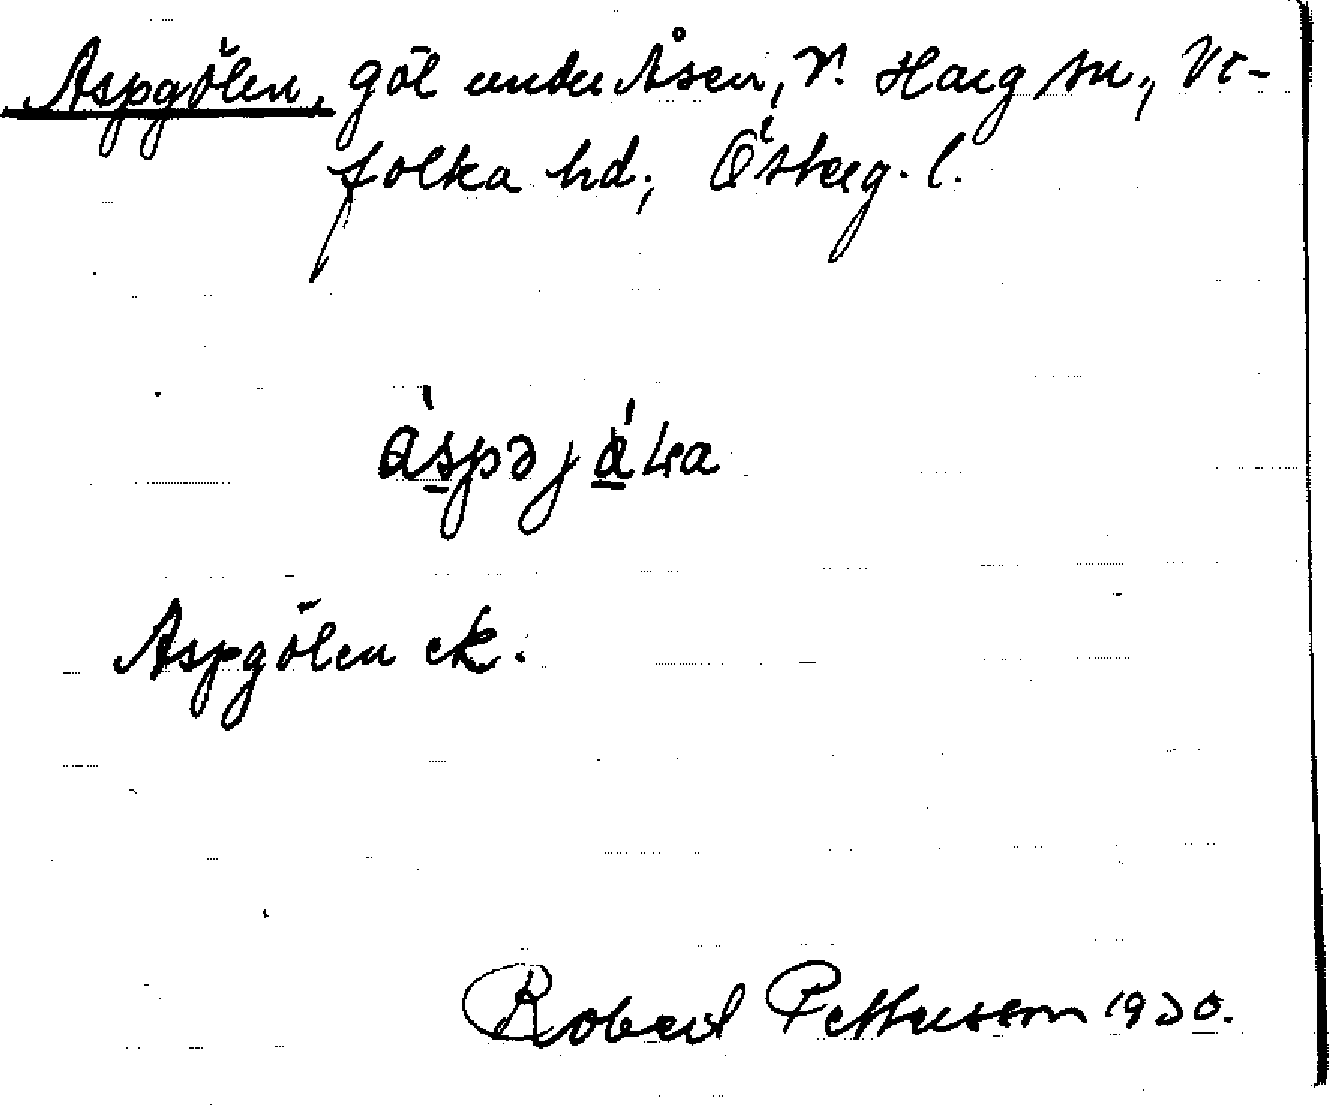 Aspgölen, göl under Åsen, V. Harg sn., Vi-
folka hd., Österg. l.
àspəjála
Aspgölen ek.
Robert Pettersson 1930.